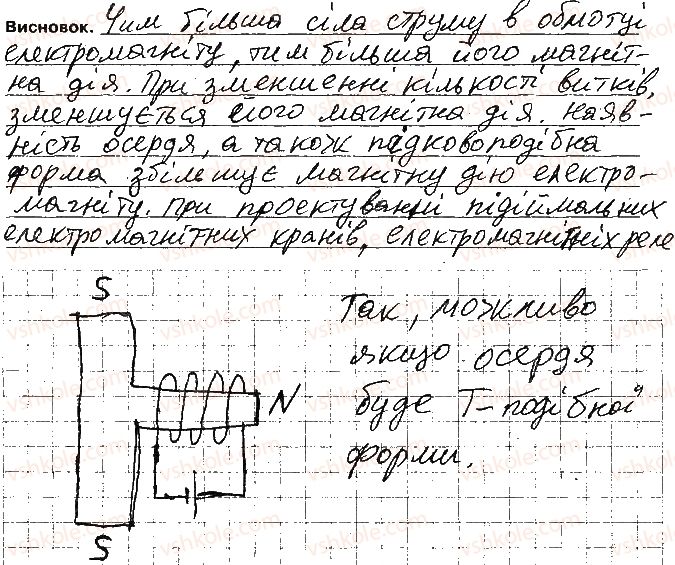 Висновок. Чим більша сіла струму в обмотці
електромагніту, тим більша його магніт-
на дія. При зменшенні кількості витків,
зменшується його магнітна дія. Наяв-
ність осердя, а також підковоподібна
форма збільшує магнітну дію електро-
магніту. При проектуванні підіймальних
електромагнітних кранів, електромагнітніх реле
S
N
S
Так, можливо
якщо осердя
буде Т-подібної
форми.
vshkole.com